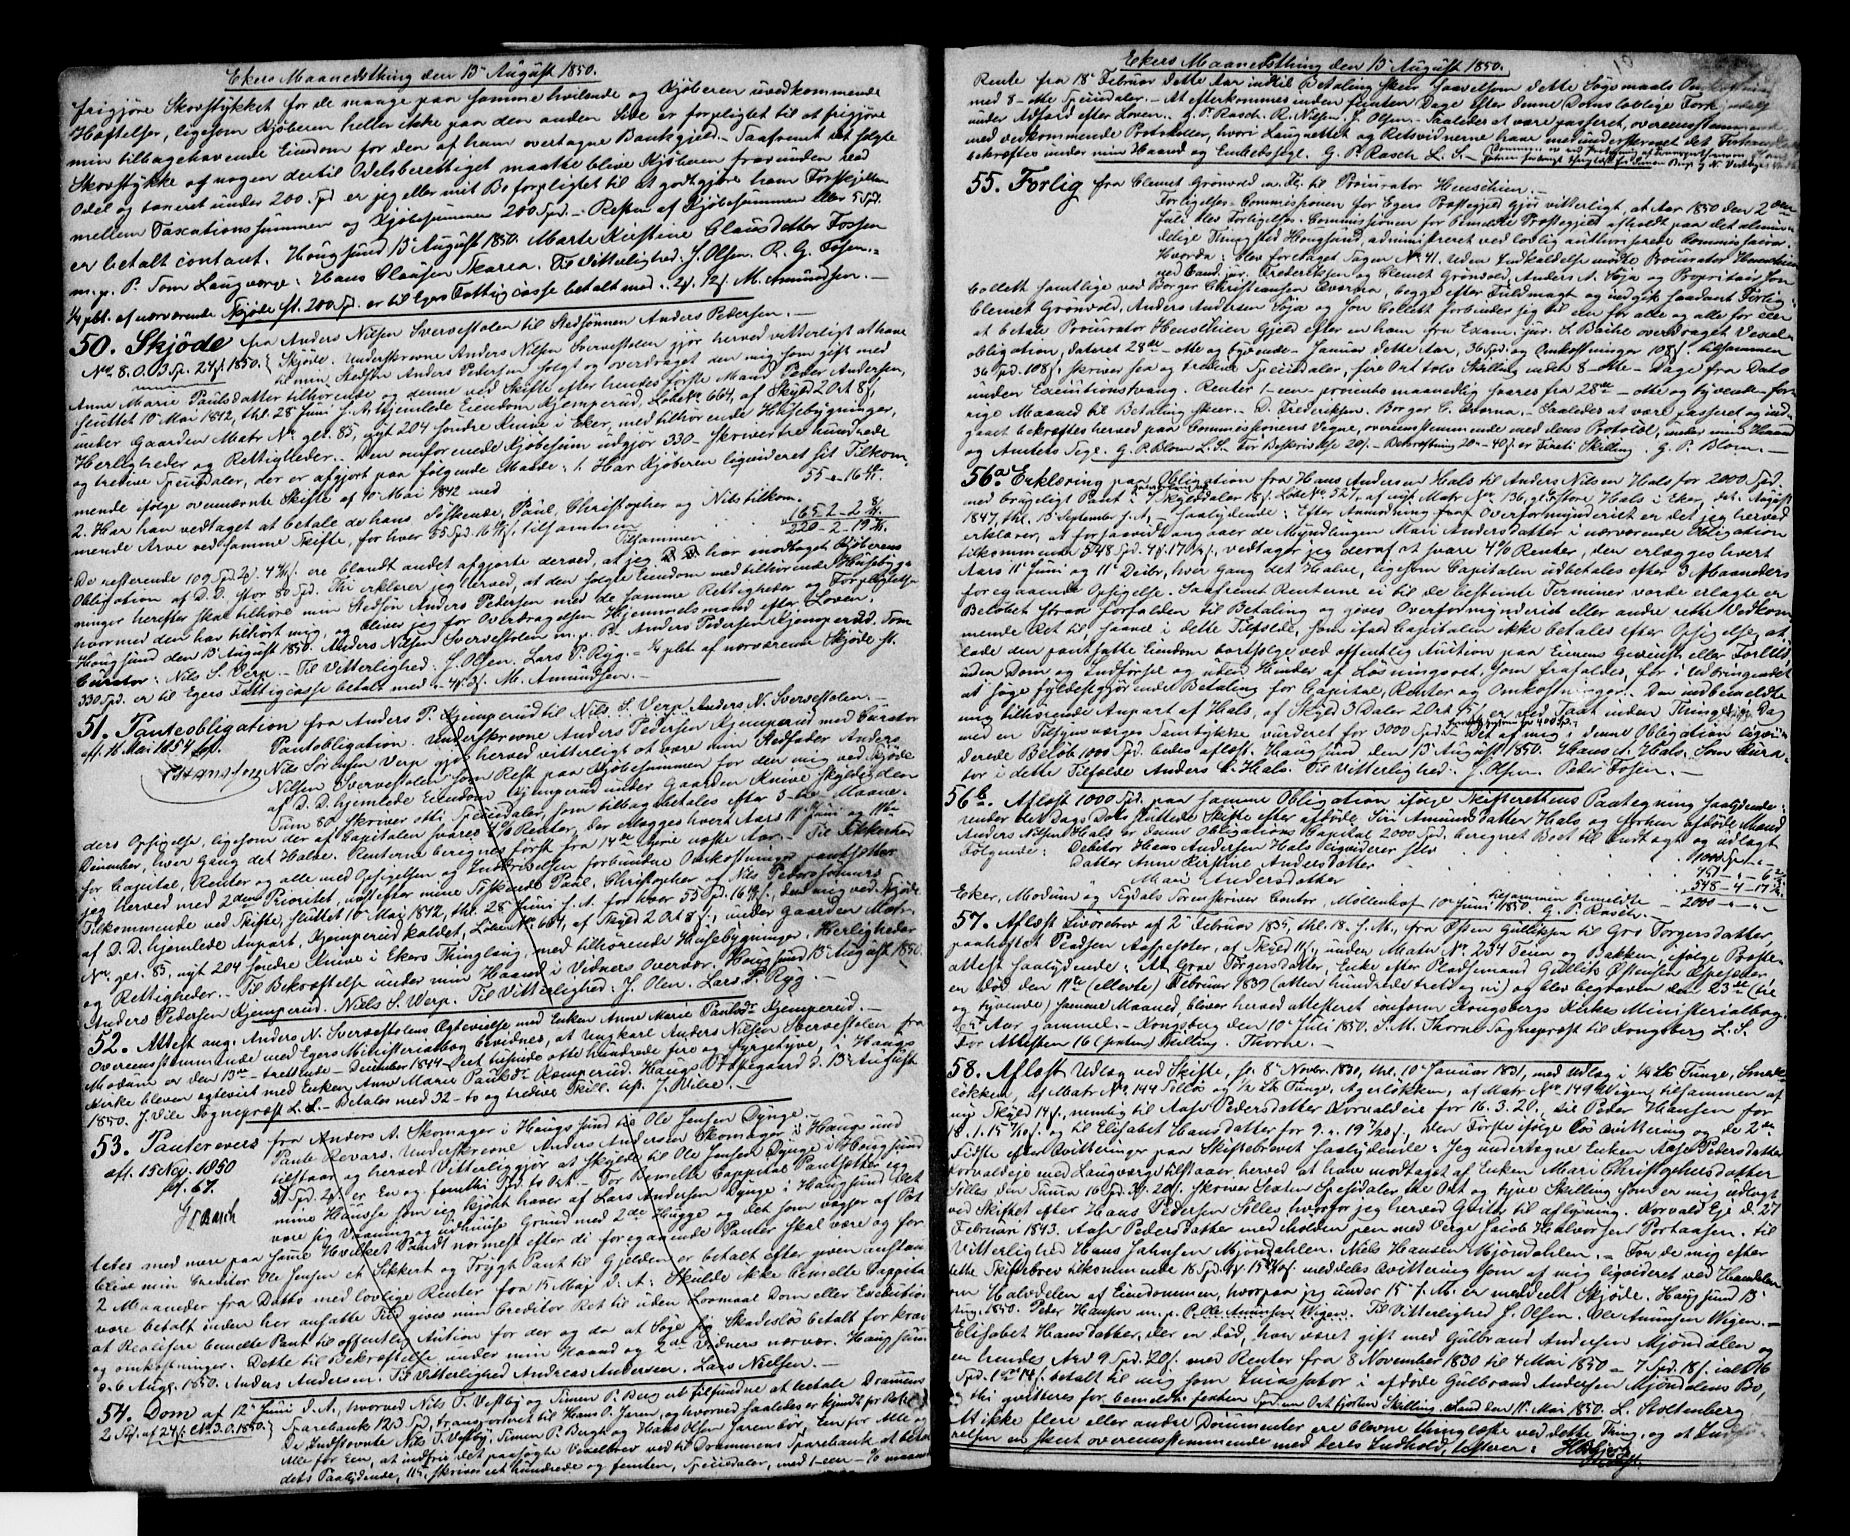 Ekers Maanedsthing den 13 August 1850.
frigjøre Skovstykket for de mange paa samme hvilende og Kjøberen uvedkommende
Hæftelser, ligesom Kjøberen heller ikke paa den anden Side er forpligtet til at frigjøre
min tilbagehavende Eiendom for den af ham overtagne Bankgjeld. - Saafremt det solgte
Skovstykke af nogen dertil Odelsberettiget maatte blive Kjøberen fravunden ved
Odel og taxeret under 200 Spd er jeg eller mit Bo forpligtet til at godtgjøre ham Forskjellen
mellem Taxationssummen og Kjøbesummen 200 Spd. - Resten af Kjøbesummen eller 5 Spd.
er betalt contant. Hougsund 13 August 1850. Marte Kirstine Clausdatter Fossen
m. p. P. Som Laugværge: Hans Clausen Skarra. Til Vitterlighed: J. Olsen. R. G. Fosen.
¼ pCt. af nærværende Skjøde st. 200 Spd. er til Egers Fattigcasse betalt med M. Amundsen. -
50. Skjøde fra Anders Nilsen Sververstolen til Stedsønnen Anders Pedersen. -
No 8. 0. 3 Sp. 24 f. 1850. Skjøde. Underskrevne Anders Nilsen Sververstolen gjør herved vitterligt at have
til min Stedsøn Anders Pedersen solgt og overdraget den mig som gift med
Anne Marie Paulsdatter tilhørende og denne ved Skifte efter hendes første Mand Peder Andersen,
sluttet 10 Mai 1842, thl. 28 Juni s. A. hjemlede Eiendom Kjemperud, Løbe No. 664, af Skyld 2 Ort 8 f,
under Gaarden Matr No. gl. 85, nyt 204 søndre Knive i Eker, med tilhørende Huusebygninger,
Herligheder og Rettigheder. - Den omforenede Kjøbesum udgjør 330 - skriver tre hundrede
og tredive Speciedaler, der er afgjort paa følgende Maade: 1. Har Kjøberen liqvideret sit Tilkom-
mende ifølge ovennævnte Skifte af 10 Mai 1842 med 55 - 16
2. Har han vedtaget at betale de hans Søskende, Paul, Christopher og Nils tilkom-
mende Arve ved samme Skifte, for hver 55 Spd. 16 f, tilsammen 165 - 2 - 2
Tilsammen 220 - 2 - 19
De resterende 109 Spd. 2 4 f. ere blandt andet afgjorte derved, at jeg har modtaget Kjøberens
Obligation af D. D. stor 80 Spd. Thi erklærer jeg herved, at den solgte Eiendom med tilhørende Huusebyg-
ninger herefter skal tilhøre min Stedsøn Anders Pedersen med de samme Rettigheder og Forpligtelser
hvormed den har tilhørt mig, og bliver jeg for Overdragelsen Hjemmelsmand efter Loven.
Hougsund den 13 August 1850. Anders Nilsen Sververstolen m. p. P. Anders Pedersen Kjemperud. Som
Curator: Nils S. Verp. - Til Vitterlighed: J. Olsen. Lars P. Ryg. - ¼ pCt. af nærværende Skjøde st.
330 Spd. er til Egers Fattigcasse betalt med M. Amundsen. -
51. Panteobligation fra Anders P. Kjemperud til Nils S. Verp, Anders N. Sververstolen. -
afl. 16 Mai 1854
Pantobligation. Underskrevne Anders Pedersen Kjemperud med Curator
Nils Sørensen Verp gjør herved vitterligt at være min Stedfader Anders
Nilsen Sververstolen som Rest paa Kjøbesummen for den mig ved Skjøde
af D. D. hjemlede Eiendom Kjemperud under Gaarden Knive skyldig den
Sum 80 skriver otti Speciedaler, som tilbagebetales efter 3 - tre - Maane-
ders Opsigelse, ligesom der af Capitalen svares 4 % Renter, der erlægges hvert Aars 11 Juni og 11te
December, hver Gang det Halve. Renterne beregnes først fra 14de April næste Aar. - Til Sikkerhed
for Capital, Renter og alle med Opsigelsen og Inddrivelsen forbundne Omkostninger pantsætter
jeg herved med 2den Prioritet, næst efter mine Søskende Paul, Christopher og Nils Pedersønners
Tilkommende ved Skifte, sluttet 10 Mai 1842, thl. 28 Juni s. A. for hver 55 Spd. 16 f, den mig ved Skjøde
af D. D. hjemlede Anpart, Kjemperud kaldet, Løbe No. 664, af Skyld 2 Ort 8 f, under Gaarden Matr.
No. gl. 85, nyt 204 søndre Knive i Ekers Thinglaug, med tilhørende Huusebygninger, Herligheder
og Rettigheder. - Til Bekræftelse under min Haand i Vidners Overvær. Hougsund 13 August 1850.
Anders Pedersen Kjemperud. Niels S. Werp. Til Vitterlighed: J. Olsen. Lars P. Ryg. -
52. Attest ang. Anders N. Sververstolens Egtevielse med Enken Anne Marie Paulsdr Kjemperud. -
Overeensstemmende med Egers Ministerialbog bevidnes, at Ungkarl Anders Nilsen Sververstolen fra
Modum er den 13de - trettende - December 1844 - Eet tusinde otte hundrede fire og fyrgetyve, i Haugs
Kirke bleven egteviet med Enken Anne Marie Paulsdr Kemperud. Haugs Præstegaard d. 13 August
1850. J. Vile Sognepræst L. S. - Betales med 32 - to og tredive Skill. J. Vilse. -
53. Panterevers fra Anders A. Skomager i Hougsund til Ole Jensen Dynge. -
afl. 15 Maj 1850
pt. 67.
G P Rasch
Pante Revars. Underskrevne Anders Andersen Skomager i Haugsund
tilstaar og herved Vitterliggjør at Skylde til Ole Jensen Dynge i Hougsund
51 Spd. er En og femtti Spd. to Ort. - For Bemelte Cappital Pantsætter jeg
mine Huusse som jeg kjøbt haver af Lars Andersen Dynge i Haugsund det
være sig Vaaning og udhuuse Grund med 2de Hugge og det som vogxer af Pot
tetes med mere paa same Hvilket Pandt nermest efter di foregaaende Panter skal være og for-
blive min Creditor Ole Jensen et Sikkert og Trygt Pant til Gjelden er betalt efter given anstan
2 Maaneder fra Datto med lovlige Renter fra 15 Maj d. A: Skulde ikke bemelte Cappital
være betalt inden her ansatte Tiid gives min Creditor Ret til uden Lovmaal Dom eller Exekution
at Realisere bemelte Pant til offentlig Auction for der og da at Søge sig Skadesløs betalt for krav
og omkostninger. Dette til Bekræftelse under min Haand og 2de Vidners nærvær. Haugsund
d. 6 Augs. 1850. Anders Andersen. Til Vitterlighed Andreas Andersen. Lars Nielsen. -
54. Dom af 12 Juni d. A, hvorved Nils T. Vestby og Simen P. Berg ere tilfundne at betale Drammens
Sparebank 123 Spd, transporteret til Hans O. Jaren, og hvorved saaledes er kjendt for Ret:
De Indstevnte Nils T. Vestby, Simen P. Berg og Hans Olsen Jaren bør, En for Alle og
Alle for Een, at indfrie det paasøgte Vexelbrev ved til Drammens Sparebank at betale
dets Paalydende, 115, skriver eet hundrede og femten, Speciedaler, med 1 - een - % maaned
Ekers Maanedsthing den 13 August 1850.
Rente fra 18 Februar dette Aar indtil Betaling skeer saavelsom dette Søgsmaals Omkostninger
med 8 - otte Speciedaler. - At efterkommes inden femten Dage efter denne Doms lovlige Forkyndelse
under Adfærd efter Loven. G. P. Rasch. R. Nilsen. J. Olsen. - Saaledes at være passeret, overeensstemmende
med vedkommende Protokoller, hvori Laugrettet og Retsvidnerne have medunderskrevet det Forhandlede
bekræftes under min Haand og Embedssegl. G. P. Rasch L. S. -
55. Forlig fra Clemet Grønvold m. Fl. til Procurator Henschien. -
Forligelses-Commissionen for Egers Præstegjeld gjør vitterligt, at Aar 1850 den 2den
Juli blev Forligelses-Commissionen for bemeldte Præstegjeld afholdt paa det almin-
delige Thingsted Hougsund, administreret ved lovlig authoriserede Commissairer.
Hvorda: Blev foretaget Sagen No. 41. Uden Indkaldelse mødte Procurator Henschien
ved Cand. jur. Frederiksen og Clemet Grønvold, Anders A. Soja og Proprietair Jon
Collett samtlige ved Borger Christiansen Qværna, begge efter Fuldmagt og indgik saadant Forlig:
Clemet Grønvold, Anders Andersen Soja og Jon Collett forbinder sig til een for alle og alle for een
at betale Procurator Henschien Gjeld efter en ham fra Exam. jur. L. Bache overdraget Vexel-
obligation, dateret 28de - otte og tyvende - Januar dette Aar, 36 Spd. og Omkostninger 108 f. tilsammen
36 Spd. 108 f. skriver sex og tredive Speciedaler, fire Ort tolv Skilling inden 8 - otte - Dage fra Dato
under Executionstvang. Renter 1 - een - procents maanedlig svares fra 28de - otte og tyvende - for-
rige Maaned til Betaling skeer. - D. Frederiksen. Borger C. Qværna. - Saaledes at være passeret og ind-
gaaet bekræftes herved paa Commissionens Vegne, overensstemmende med dens Protocol, under min Haand
og Amtets Segl. G. P. Blom L. S. For Beskrivelse 20 f. - Bekræftning 20 - 40 f. er Fireti Skilling. G. P. Blom. -
56a Erklæring paa Obligation fra Hans Andersen Hals til Anders Nilsen Hals for 2000 Spd.
med brugeligt Pant i 7 Skylddaler 18 f. Løbe No. 527, af nyt Matr No. 136, gl. Store Hals i Eker, dat. August
1847, thl. 13 September s. A. - Saalydende: Efter Anmodning fra Overformynderiet er det jeg herved
erklærer, at for saavidt angaaer de Myndlingen Mari Andersdatter i nærværende Obligation
tilkommende 548 Spd. 4 17 f, vedtager jeg deraf at svare 4 % Renter, den erlægges hvert
Aars 11 Juni og 11 Decbr, hver Gang det Halve, ligesom Capitalen udbetales efter 3 Maaneders
foregaaende Opsigelse. Saafremt Renterne ei til de bestemte Terminer vorde erlagte er
Beløbet strax forfalden til Betaling og gives Overformynderiet eller andre rette Vedkom-
mende Ret til, saavel i dette Tilfælde, som ifald Capitalen ikke betales efter Opsigelse, at
lade den pantsatte Eiendom bortsælge ved offentlig Auction paa Eierens Gevinst eller Forliis
uden Dom og Indførsel og uden Hinder af Løsningsret, som frafaldes, for i Udbringendet
at søge fyldestgjørende Betaling for Capital, Renter og Omkostninger. Den ved bemeldte
mig tilhørende Anpart af Hals, af Skyld 3 Daler 20 rt 5 f er ved Taxt inden Thinget i Dag
med en Tilsynsværges Samtykke vurderet for 3000 Spd. - Det af mig i denne Obligation liqvi-
derede Beløb 1000 Spd. bedes aflæst. Haugsund den 13 August 1850. Hans A. Hals. Som Cura-
tor i dette Tilfælde Anders Hals. Til Vitterlighed: J. Olsen. Peder Fosen. -
56b. Aflæst 1000 Spd. paa samme Obligation ifølge Skifterettens Paategning saalydende:
render det Dags Dato sluttede Skifte efter afdøde Siri Amundsdatter Hals og forhen afdøde Mand
Anders Nilsen Hals er denne Obligations Capital 2000 Spd. beregnet Boet til Indtægt og udlagt
Følgende: Debitor Hans Andersen Hals liqviderer selv 1000 Spd. - -
Datter Anne Kirstine Andersdatter 451 - - 6
Mari Andersdatter 548 - 4 - 17
tilsammen bemeldte 2000 - - -
Eker, Modum og Sigdals Sorenskriver Contor, Møllenhof 10 Juni 1850. G. P. Rasch. -
57. Aflæst Livørebrev af 2 Februar 1835, thl. 18. s. M., fra Østen Gulliksen til Gro Torgersdatter,
paaheftet Pladsen Aaspesæter, af Skyld 11 f, under Matr No. 234 Teien og Bakken, ifølge Præste-
attest saalydende: At Groe Torgersdatter, Enke efter Pladsemand Gullik Østensen Espesæter
en død den 11te (ellevte) Februar 1839 (atten hundrede treti og ni) og blev begraven den 23de (tre
og tyvende) samme Maaned, bliver herved attesteret conform Kongsbergs Kirkes Ministerialbog.
Aar gammel. - Kongsberg den 10 Juli 1850. J. M. Thorne Sognepræst til Kongsberg L. S.
For Attesten 16 (sexten) Skilling. Thorne. -
58. Aflæst Udlæg ved Skifte, sl. 8 Novbr. 1830, thl. 10 Januar 1831, med Udlæg i ¼ Lb Tunge, Smak-
løkken, af Matr No. 144 Solløs og ½ Lb Tunge, Agerløkken, af Matr No. 149 Wigen, tilsammen af
ny Skyld 14 f, nemlig til Aase Pedersdatter Korvaldeie for 16. 3. 20., til Peder Hansen for
18. 1. 15 og til Elisabet Hansdatter for 9. 19, den Første ifølge løs Qvittering og de 2de
Sidste efter Qvitteringer paa Skiftebrevet saalydende: Jeg undertegne Enken Aase Pedersdatter
Korvaldeje med Laugværge tilstaaer herved at have modtaget af Enken Mari Christophersdatter
Solles den Summa 16 Spd. 20 f. skriver Sexten Spesidaler tre Ort og tyve Skilling som er mig udlagt
ved Skiftet efter Hans Pedersen Solles, hvorfor jeg herved Quitter til aflysning. Korvald Eje d. 27
Februari 1843. Aase Pedersdatter med holden pen med Verge Jacob Halvorsen Portaasen. til
Vitterlighed Hans Jahnsen Mjøndahlen. Niels Hansen Mjøndahlen. - Fra de mig efter
dette Skiftebrev tilkommende 18 Spd. 1. 15 meddeles Qvittering som af mig liqvideret ved Handelen
om Halvdelen af Eiendommen, hvorpaa jeg under 15 s. M. er meddeelt Skjøde. Haugsund 13
Aug. 1850. Peder Hansen m. p. P. Ole Amunsen Wigen. Til Vitterlighed J. Olsen. Ole Amunsen Wigen. -
Elisabet Hansdatter, der er død, har været gift med Gulbrand Andersen Mjøndalen og
en hendes Arv 9 Spd. 20 f. med Renter fra 8 November 1830 til 4 Mai 1850 - 7 Spd. 18 f. ialt 16
Spd. 1 Ort 14 f. betalt til mig som Incassator i afdøde Gulbrand Andersen Mjøndalens Bo,
thi qvitteres for bemeldte sexten Spd. een Ort fjorten Skilling. Lund den 11 Mai 1850. L. Stoltenberg
At ikke flere eller andre Documenter ere blevne thinglæste ved dette Thing, og at Indfø-
relsen er skeet overensstemmende med deres Indhold, testerer: